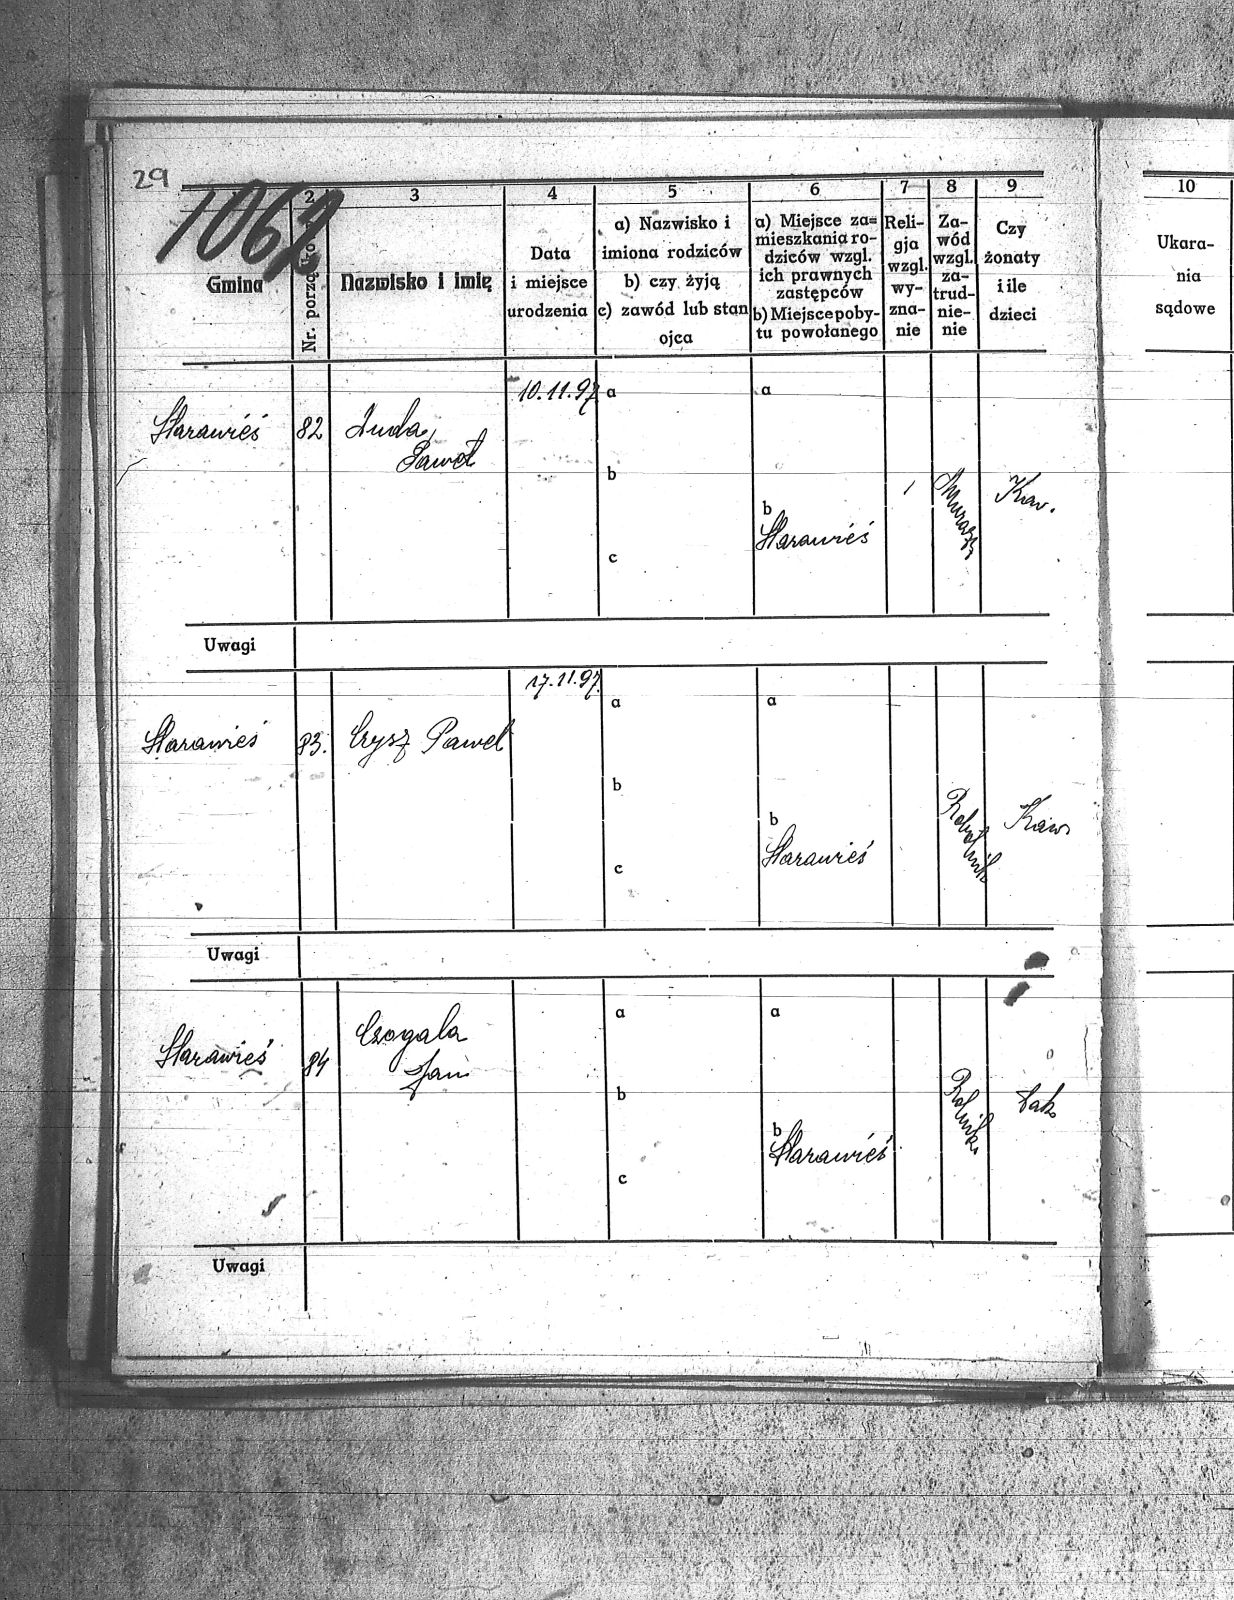 29
1062
2 3 4 5 6 7 8 9 10
Gmina
Nr. porządko
Nazwisko i imię
Data
i miejsce
urodzenia
a) Nazwisko i
imiona rodziców
b) czy żyją
c) zawód lub stan
ojca
a) Miejsce za=
mieszkania ro-
dziców wzgl.
ich prawnych
zastępców
b) Miejsce poby-
tu powołanego
Reli-
gja
wzgl.
wy-
zna-
nie
Za-
wód
wzgl.
za-
trud-
nie-
nie
Czy
żonaty
i ile
dzieci
Ukara-
nia
sądowe
Starawieś 82
Paweł
10.11.97
a
b
c
a
b
Starawieś
Murarz
Kaw.
Uwagi
Starawieś 83. Czysz Pawel
17.11.97.
a
b
c
a
b
Starawieś
Robotnik
Kaw.
Uwagi
Starawieś 84
Czogala
Jan
a
b
c
a
b
Starawieś
Rolnik
tak
Uwagi